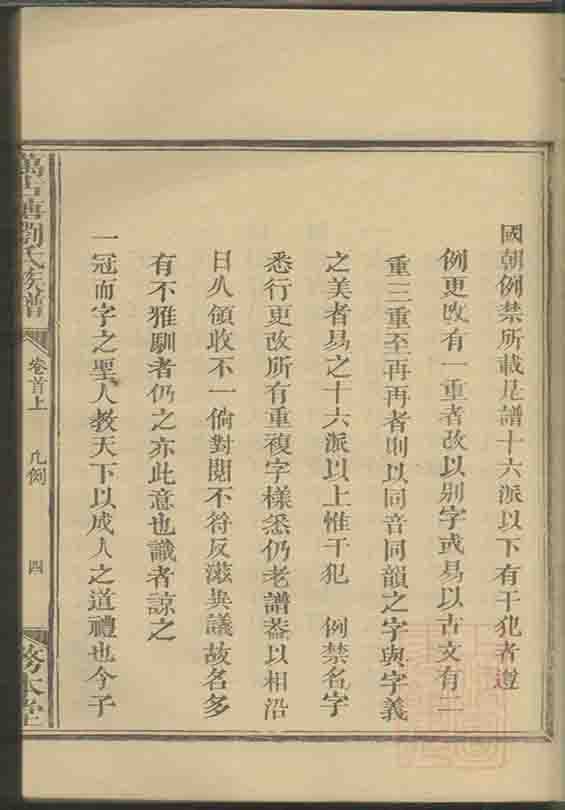 國朝例禁所載是譜十六派以下有干犯者遵
例更改有一重者改以别字或易以古文有二
重三重至再再者則以同音同韻之字與字義
之美者易之十六派以上惟干犯 例禁名字
悉行更改所有重複字樣悉仍老譜葢以相沿
日久領收不一倘對閱不符反滋異議故名多
有不雅馴者仍之亦此意也識者諒之
一冠而字之聖人教天下以成人之道禮也今子
劉氏族譜
卷首上
凡例
四
務本堂